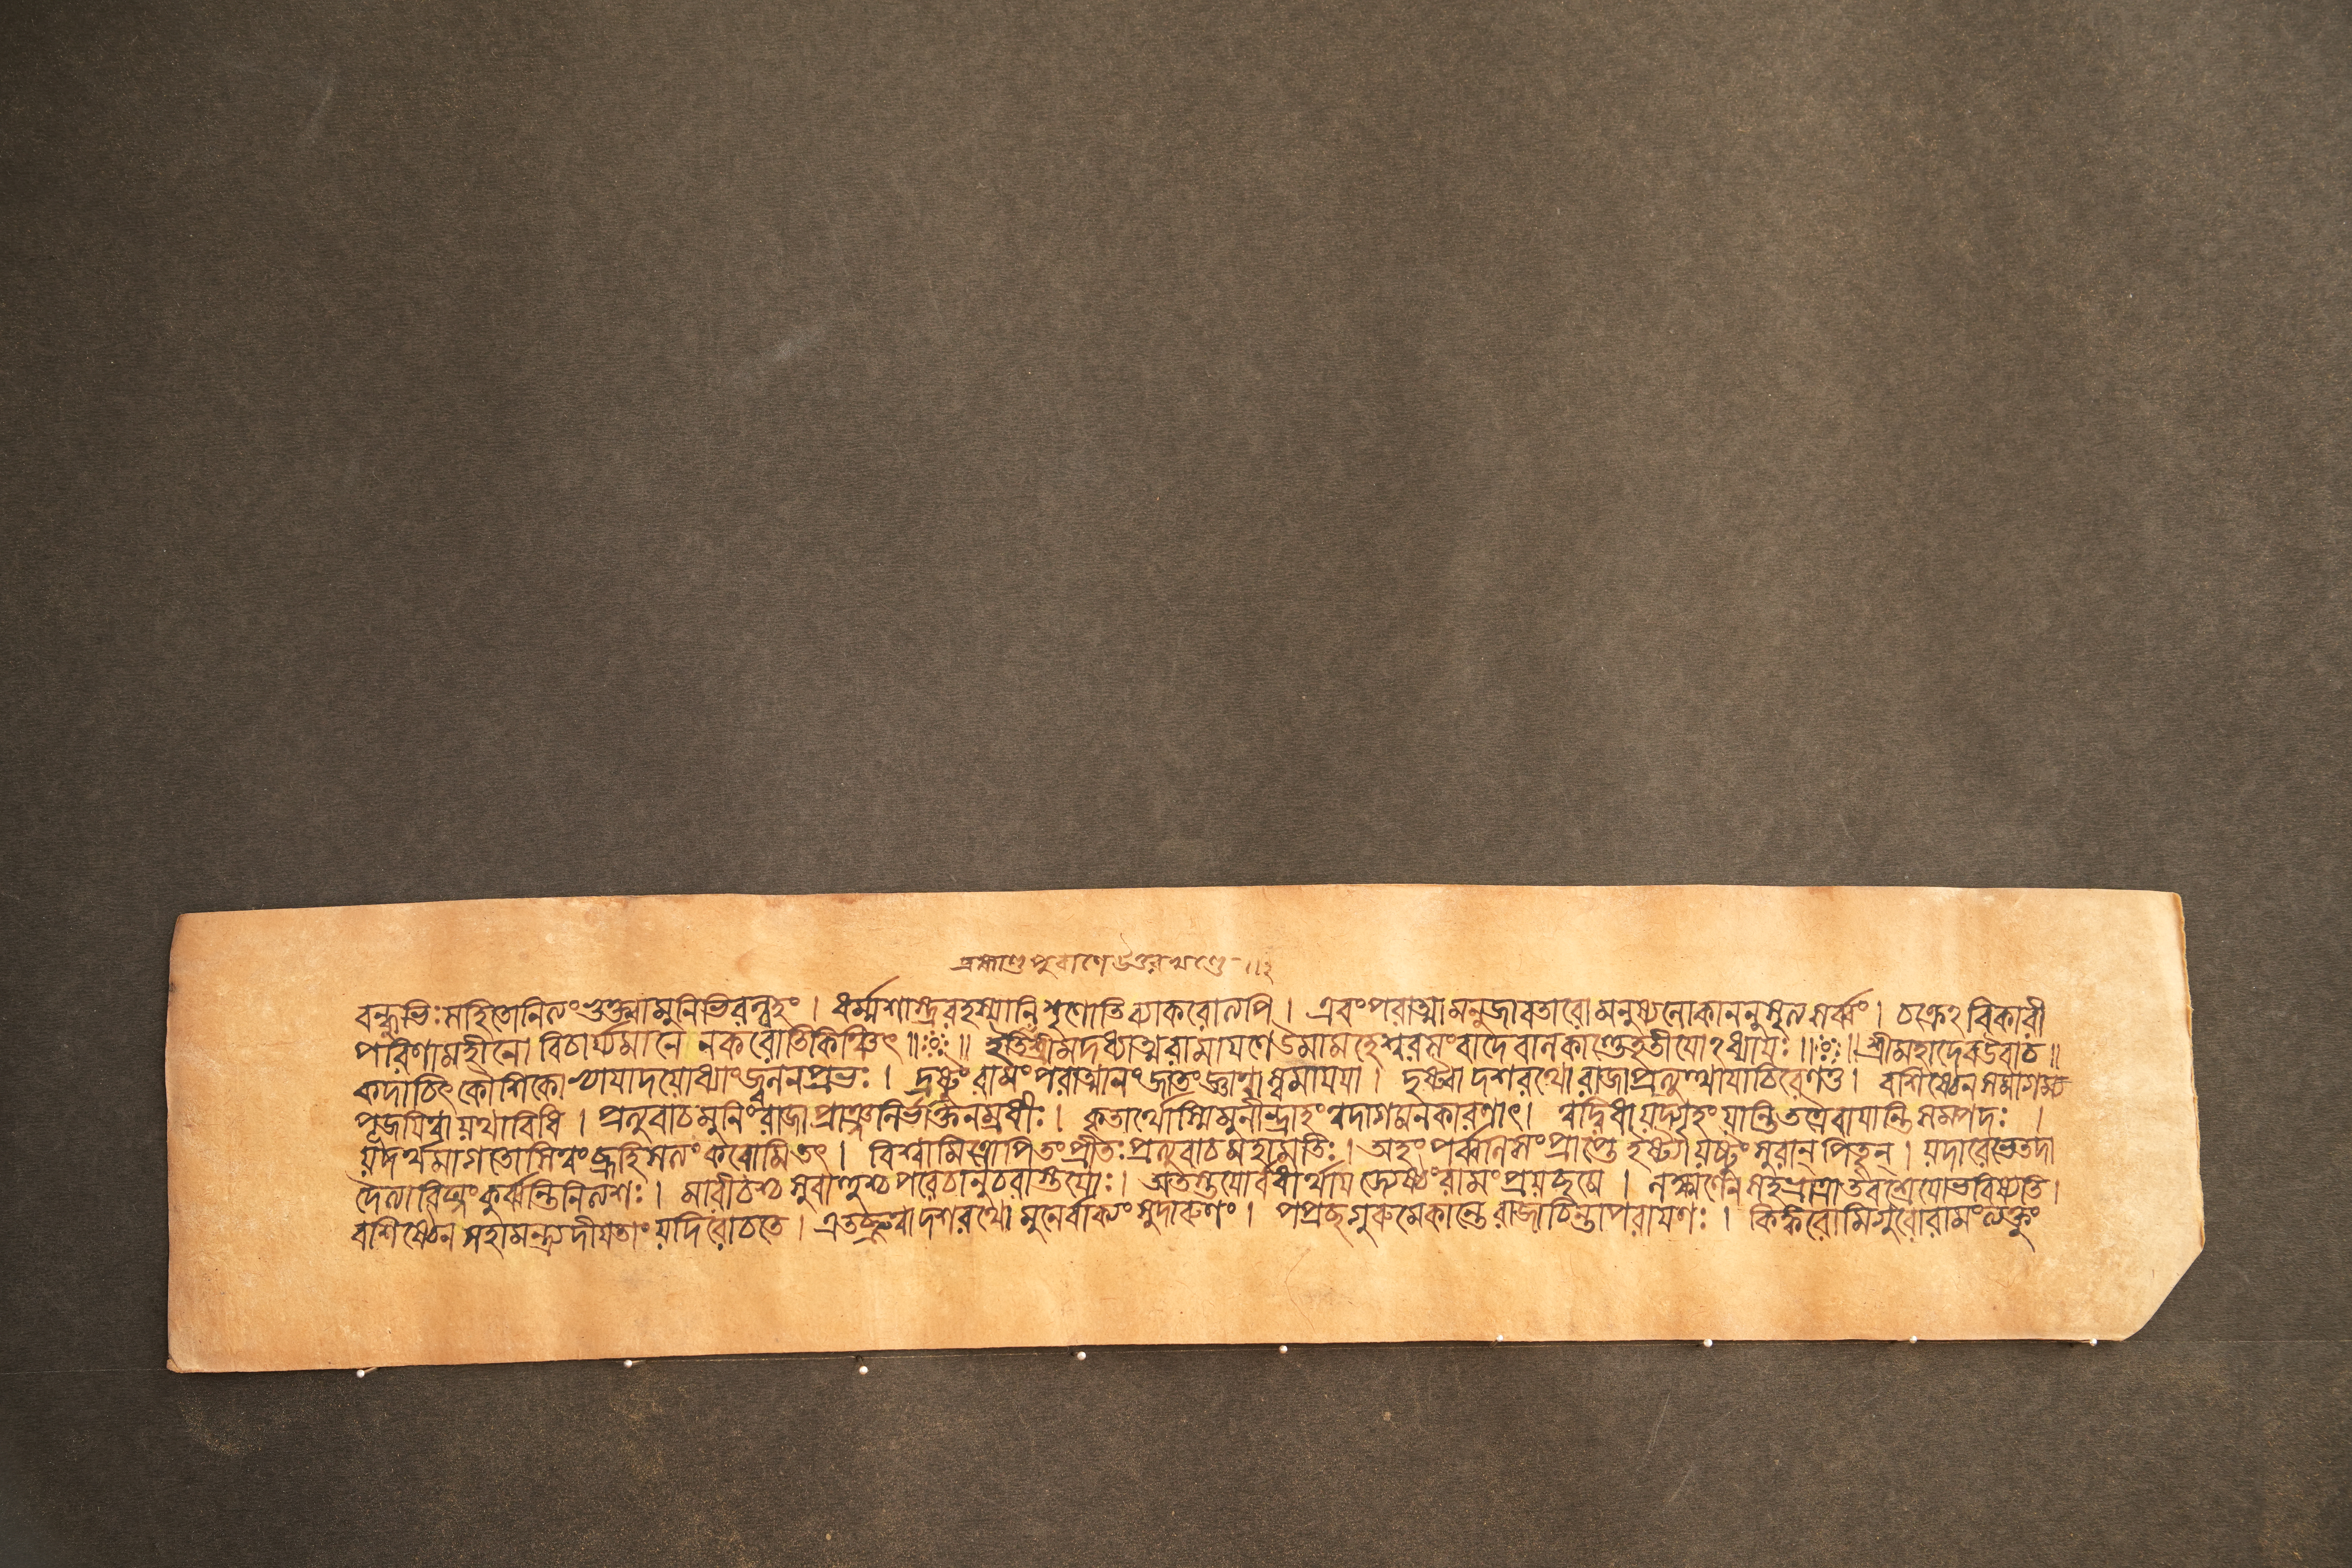 ব্রহ্মাণ্ডপুরাণে উত্তরখণ্ডে
বন্ধুভিঃ সহিতোনিত্যং ভুক্ত্বামুনিভিরন্বহং । ধর্ম্মশাস্ত্ররহস্যানি শৃণোতি ব্যাকরোত্যপি । এবংপরাত্মামনুজাবতারো মনুষ্যলোকাননুসৃত্যসর্ব্বং । চক্রেঽবিকারী
পরিণামহীনো বিচার্য্যমানে নকরোতিকিঞ্চিৎ ॥ ইতিশ্রীমদধ্যাত্মরামায়ণেউমামহেশ্বরসংবাদেবালকাণ্ডেতৃতীয়োঽধ্যায়ঃ ॥ শ্রীমহাদেবউবাচ ॥
কদাচিৎ কৌশিকো ভ্যায়াদযোধ্যাংজ্বলনপ্রভঃ । দ্রষ্টুং রামং পরাত্মানং জাতংজ্ঞাত্বা স্বমায়যা । দৃষ্ট্বা দশরথো রাজাপ্রত্যুত্থায়াচিরেণতু । বশিষ্ঠেন সমাগম্য
পূজয়িত্বা যথাবিধি । প্রত্যুবাচমুনিং রাজা প্রাঞ্জলির্ভক্তিনম্রধীঃ । কৃতার্থোস্মিমুনীন্দ্রাহং ত্বদাগমনকারণাৎ । ত্বদ্বিধাযদ্গৃহং যান্তিতত্রৈবায়ান্তি সম্পদঃ ।
যদর্থমাগতোসিত্বংব্রূহিসত্যং করোমিতৎ । বিশ্বামিত্রোপিতংপ্রীতঃ প্রত্যুবাচ মহামতিঃ । অহং পর্ব্বণিসংপ্রাপ্তে ইষ্ট্যাযষ্টুং সুরান্ পিতৄন্ । যদারেভেতদা
দৈত্যাবিঘ্নং কুর্ব্বন্তিনিত্যশঃ । মারীচশ্চ সুবাহুশ্চ পরেচানুচরাস্তয়োঃ । অতস্তয়োর্বধার্থায় জ্যেষ্ঠংরামং প্রযচ্ছমে । লক্ষ্মণেন সহভ্রাত্রাতবশ্রেয়োভবিষ্যতি ।
বশিষ্ঠেন সহামন্ত্র্যদীয়তাং যদিরোচতে । এতচ্ছ্রুত্বাদশরথো মুনের্বাক্যং সুদারুণং । পপ্রচ্ছগুরুমেকান্তে রাজাচিন্তাপরায়ণঃ । কিঙ্করোমিগুরোরামংত্যক্তুং